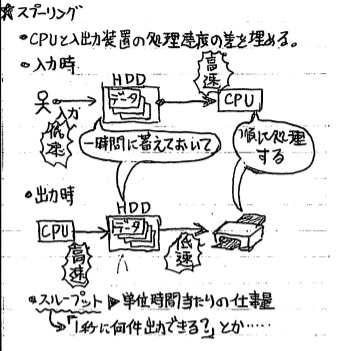 ☆スプーリング
・CPUと入出力装置の処理速度の差を埋める。
・入力時
HDD
高速
入力
データ
CPU
低速
一時間に蓄えておいて
順に処理する
・出力時
HDD
CPU
データ
高速
低速
・スループット ▶ 単位時間当たりの仕事量
→「1秒に何件出力できる?」とか……